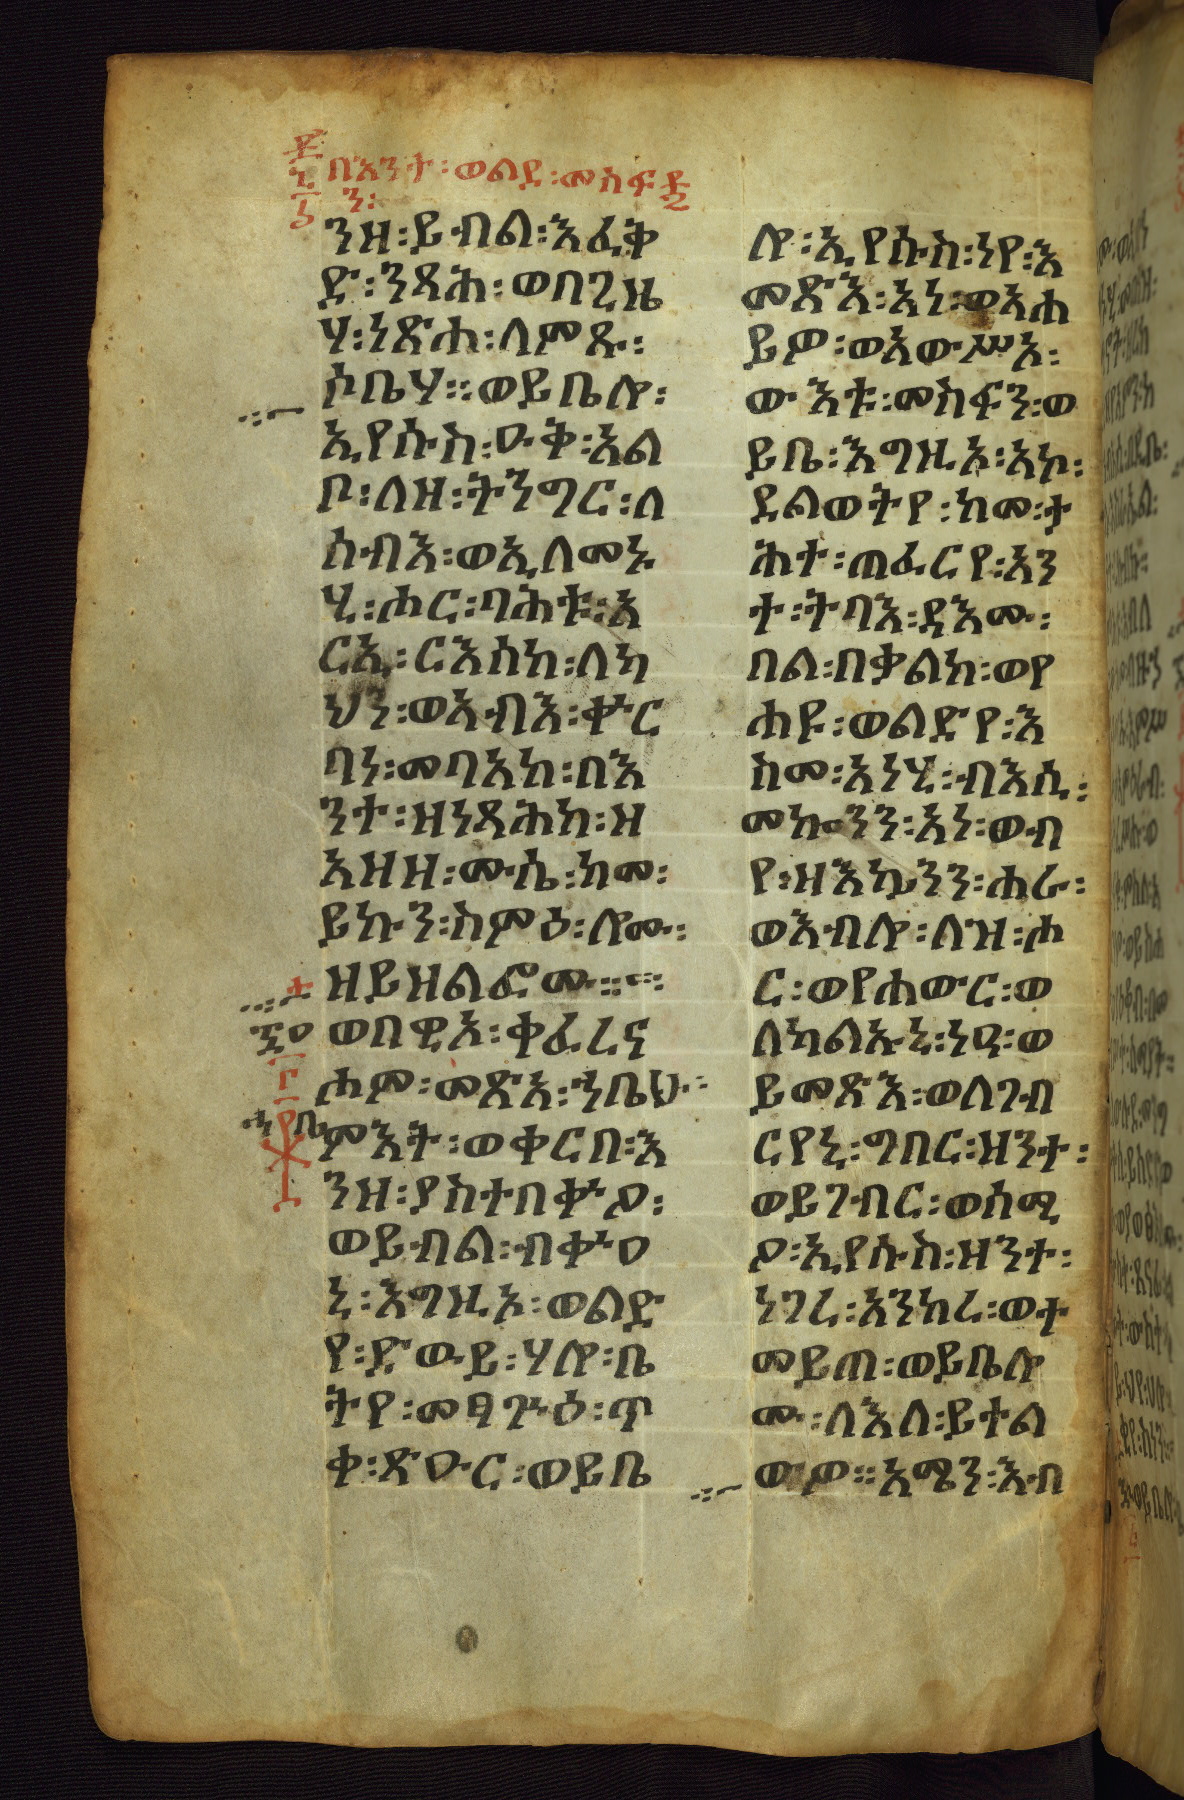 በእንተ፡ወልደ፡መስፍ
ን፡
ንዘ፡ይብል፡እፈቅ
ድ፡ንጻሕ፡ወበጊዜ
ሃ፡ነጽሐ፡ለምጹ፡
ሶቤሃ፡፡ወይቤሎ፡
ኢየሱስ፡ዑቅ፡አል
ቦ፡ለዘ፡ትንግር፡ለ
ሰብእ፡ወኢለመኑ
ሂ፡ሐር፡ባሕቱ፡አ
ርኢ፡ርእሰከ፡ለካ
ህን፡ወአብእ፡ቍር
ባነ፡መባአከ፡በእ
ንተ፡ዘነጻሕከ፡ዘ
አዘዘ፡ሙሴ፡ከመ፡
ይኩን፡ስምዕ፡ሎሙ፡
ዘይዘልፎሙ፡፡
ወበዊኦ፡ቅፈረና
ሐም፡መጽአ፡ኀቤሁ፡
መእት፡ወቀርበ፡እ
ንዘ፡ያስተበቍዖ፡
ወይብል፡ብቍዐ
ኒ፡እግዚኦ፡ወልድ
የ፡ድውይ፡ሃሎ፡ቤ
ትየ፡መፃጕዕ፡ጥ
ቀ፡ጽዑር፡ወይቤ
ሎ፡ኢየሱስ፡ነየ፡እ
መጽእ፡አነ፡ወአሐ
ይዎ፡ወአውሥአ፡
ውእቱ፡መስፍን፡ወ
ይቤ፡እግዚኦ፡አኮ፡
ደልወትየ፡ከመ፡ታ
ሕተ፡ጠፈርየ፡አን
ተ፡ትባእ፡ዳእሙ፡
በል፡በቃልከ፡ወየ
ሐዩ፡ወልድየ፡እ
ስመ፡አነሂ፡ብእሲ፡
መኰንን፡አነ፡ወብ
የ፡ዘእኴንን፡ሐራ፡
ወእብሎ፡ለዝ፡ሐ
ር፡ወየሐውር፡ወ
ለካልኡኒ፡ነዓ፡ወ
ይመጽእ፡ወለገብ
ርየኒ፡ግበር፡ዘንተ፡
ወይገብር፡ወሰሚ
ዖ፡ኢየሱስ፡ዘንተ፡
ነገረ፡አንከረ፡ወተ
መይጠ፡ወይቤሎ
ሙ፡ለእለ፡ይተል
ውዎ፡፡አሜን፡እብ